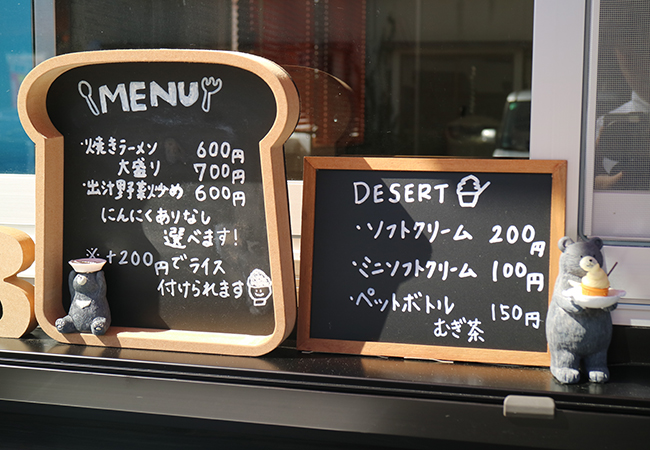 MENU
・焼きラーメン 600円
大盛り 700円
・出汁野菜炒め 600円
にんにくありなし
選べます!
※+200円でライス
付けられます
B
DESERT
・ソフトクリーム 200円
・ミニソフトクリーム 100円
・ペットボトル 150円
むぎ茶